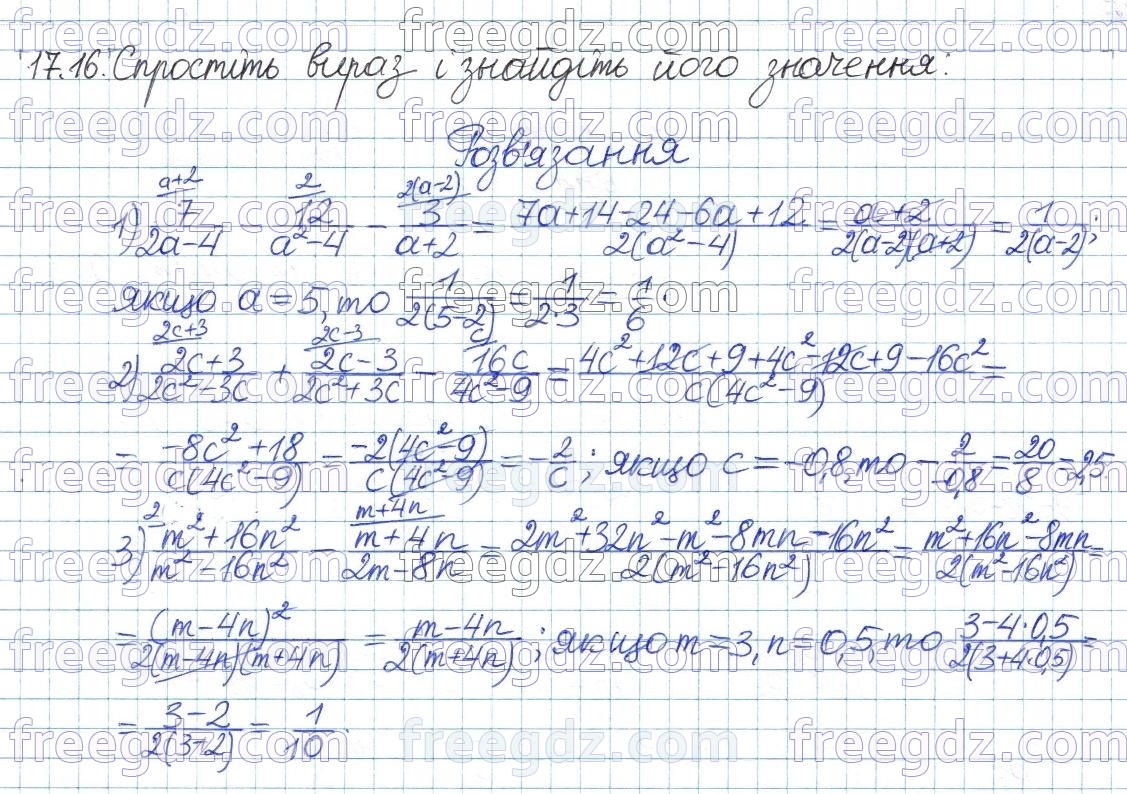 17.16. Спростіть вираз і знайдіть його значення:
Розв'язання
1) \frac{7}{2a-4}^{a+2} - \frac{12}{a²-4}^{2} - \frac{3}{a+2}^{2(a-2)} = \frac{7a+14-24-6a+12}{2(a²-4)} = \frac{a+2}{2(a-2)(a+2)} = \frac{1}{2(a-2)};
якщо a = 5, то \frac{1}{2(5-2)} = \frac{1}{2·3} = \frac{1}{6}.
2) \frac{2c+3}{2c²-3c}^{2c+3} + \frac{2c-3}{2c²+3c}^{2c-3} - \frac{16c}{4c²-9}^{c} = \frac{4c²+12c+9+4c²-12c+9-16c²}{c(4c²-9)} =
= \frac{-8c²+18}{c(4c²-9)} = \frac{-2(4c²-9)}{c(4c²-9)} = -\frac{2}{c}; якщо c = -0,8, то -\frac{2}{-0,8} = \frac{20}{8} = 2,5.
3) \frac{m²+16n²}{m²-16n²}^{2} - \frac{m+4n}{2m-8n}^{m+4n} = \frac{2m²+32n²-m²-8mn-16n²}{2(m²-16n²)} = \frac{m²+16n²-8mn}{2(m²-16n²)} =
= \frac{(m-4n)²}{2(m-4n)(m+4n)} = \frac{m-4n}{2(m+4n)}; якщо m = 3, n = 0,5, то \frac{3-4·0,5}{2(3+4·0,5)} =
= \frac{3-2}{2(3+2)} = \frac{1}{10}.
freegdz.com